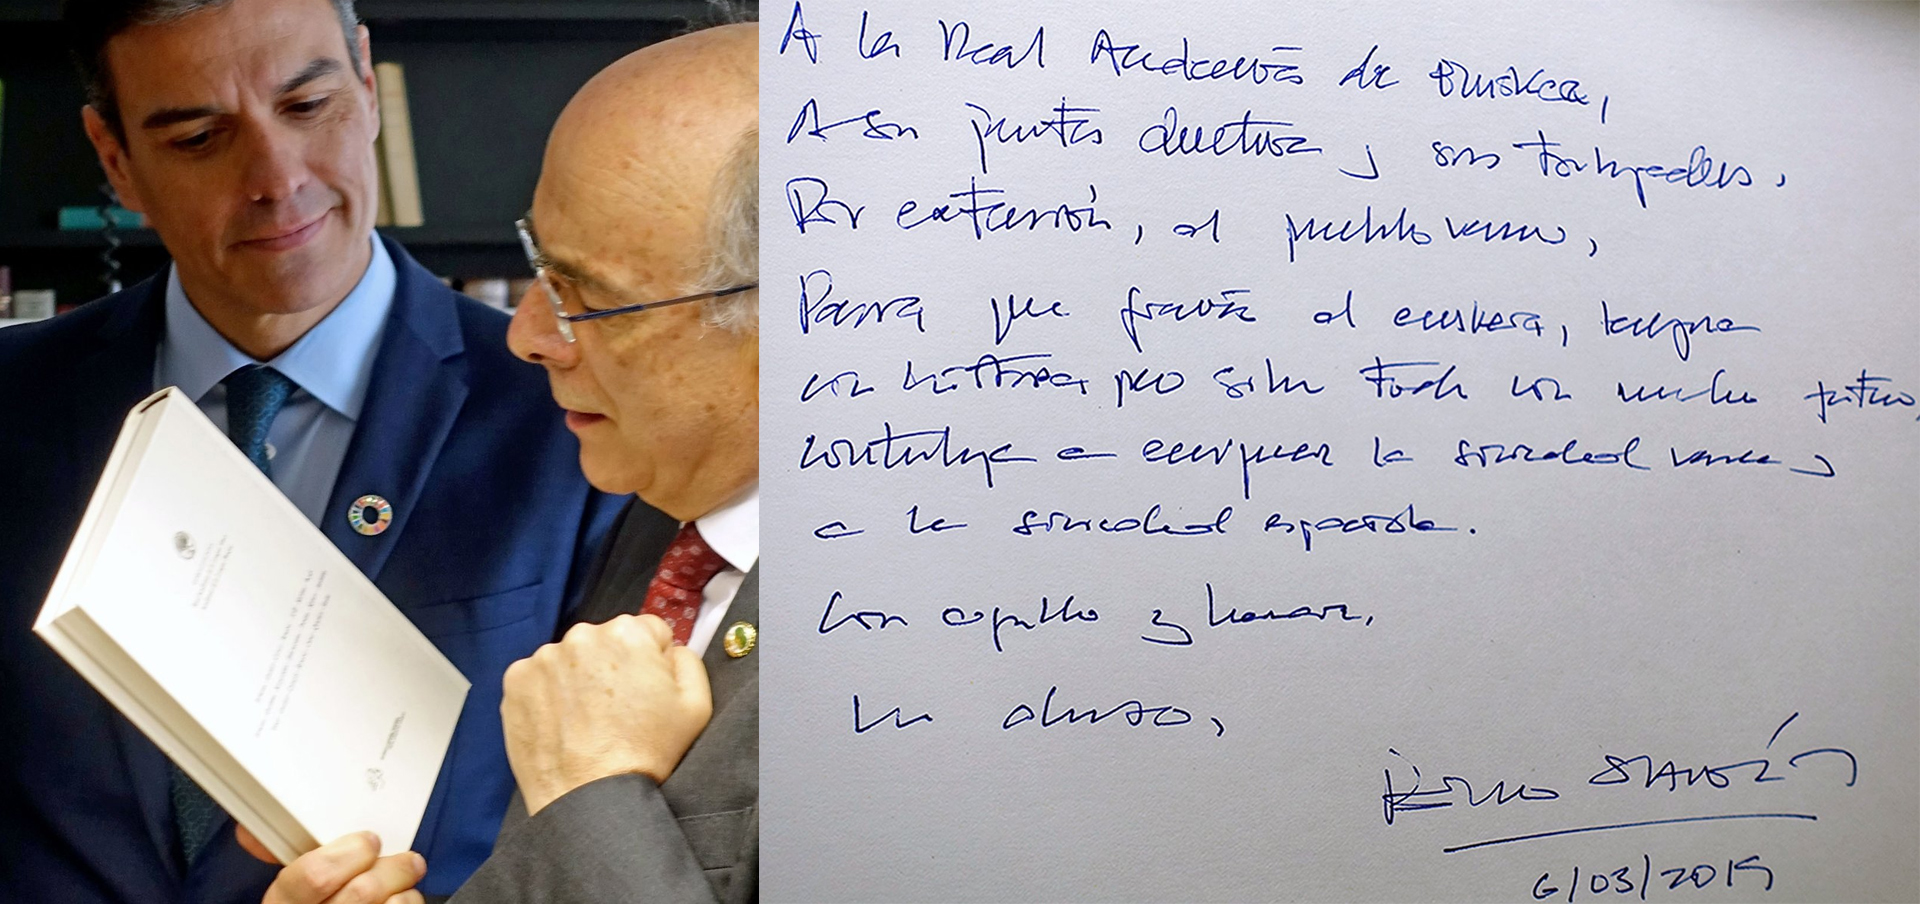 A la Real Academia de Euskera,
A su junta directiva y sus trabajadores.
Por extensión, al pueblo vasco,
Para que gracias al euskera, lengua
con historia pero sobre todo con mucho futuro,
contribuya a enriquecer la sociedad vasca y
a la sociedad española.
Con orgullo y honor,
Un abrazo,
Pedro SÁNCHEZ
6/03/2019